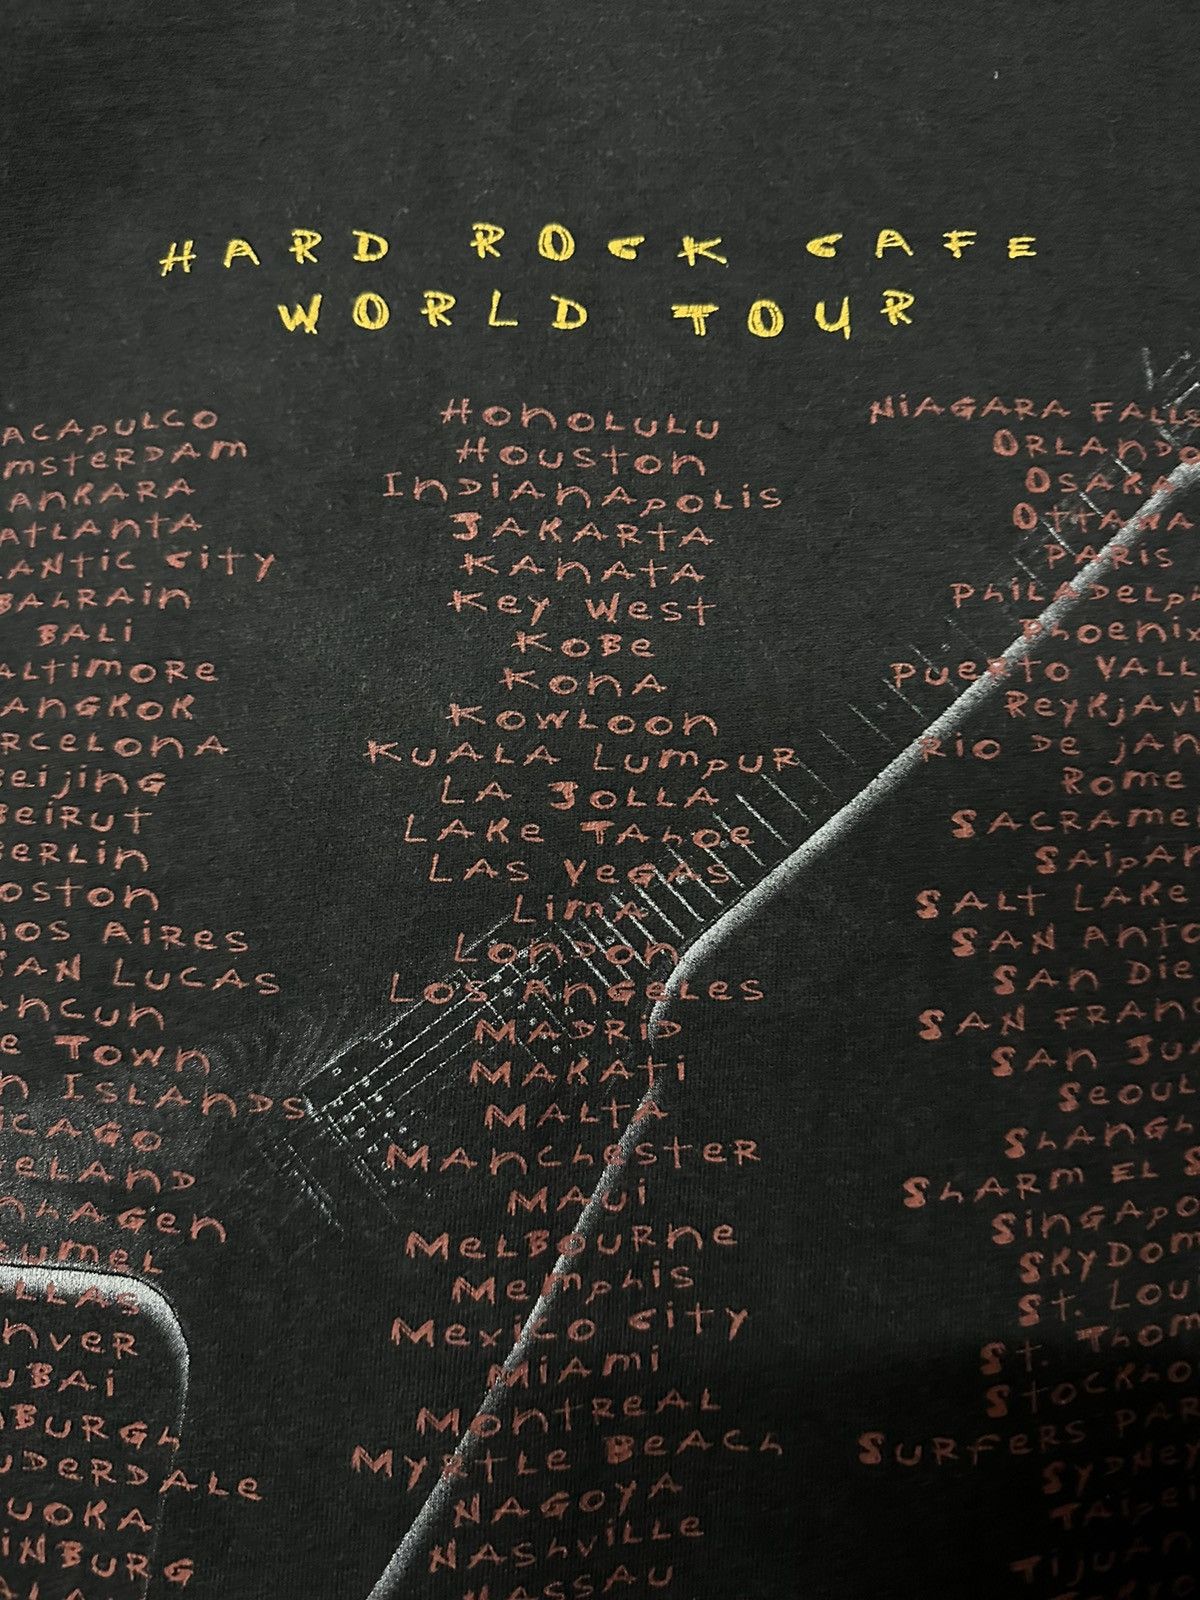 HARD ROCK CAFE
WORLD TOUR
ACAPULCO
msteRDAm
ANKARA
ATLANTA
LANtic city
BAhRAin
BALi
ALtimoRe
AnGKoK
RceLonA
Beijing
BeiRut
BeRLin
oston
nos AiRes
SAN LUCAS
ncun
e TOWN
n ISLANDS
icAGO
veLAND
nhAGen
zumeL
LLAS
nveR
uBAi
nBURGh
uDeRDALe
uoKA
inBURG
HonoLuLu
Houston
InDiAnApoLis
JAKARTA
KAnAtA
Key West
KoBe
KonA
KowLoon
KuALA LumpuR
LA JoLLA
LAKe TAhoe
LAS VeGAS
LimA
LonDon
Los AnGeLes
MADRiD
MAKAti
MALTA
MAnchesteR
MAui
MeLBouRne
Memphis
Mexico city
MiAmi
MontReAL
MyRtLe BeAch
NAGoyA
NAshviLLe
NASSAU
NiAGARA FALLS
ORLAnDo
OSAKA
OttAWA
PARis
PhiLADeLph
Phoenix
PueRto VALL
ReyKjAvi
Rio De jAn
Rome
SACRAme
SAipAn
SALt LAKe
SAN Anto
SAn Die
SAN FRAn
SAn JuA
SeouL
ShAnGh
ShARm EL S
SinGApo
SKyDom
St. Lou
St. Thom
StocKho
SuRfeRs PAR
SyDney
TAipei
TijuAn